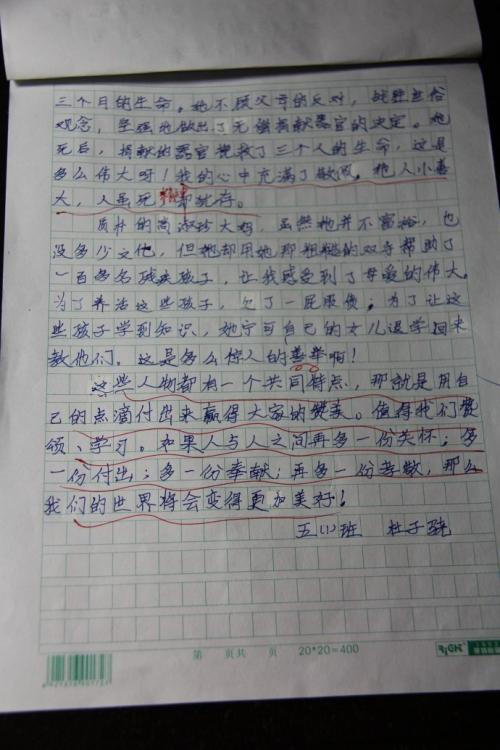 三个月的生命。她不顾父母的反对，战胜世俗
观念，坚强地做出了无偿捐献器官的决定。她
死后，捐献的器官挽救了三个人的生命，这是
多么伟大呀！我的心中充满了敬佩。她人小志
大，人虽死精神却犹存。
质朴的高淑珍大妈，虽然她并不富裕，也
没多少文化，但她却用她那粗糙的双手帮助了
一百多名残疾孩子，让我感受到了母爱的伟大。
为了养活这些孩子，欠了一屁股债；为了让这
些孩子学到知识，她宁可自己的女儿退学回来
教他们。这是多么惊人的善举啊！
这些人物都有一个共同特点，那就是用自
己的点滴付出来赢得大家的赞美。值得我们赞
颂、学习。如果人与人之间再多一份关怀；多
一份付出；多一份奉献；再多一份孝敬，那么
我们的世界将会变得更加美好！
五(1)班 杜子
第 页共 页 20*20=400